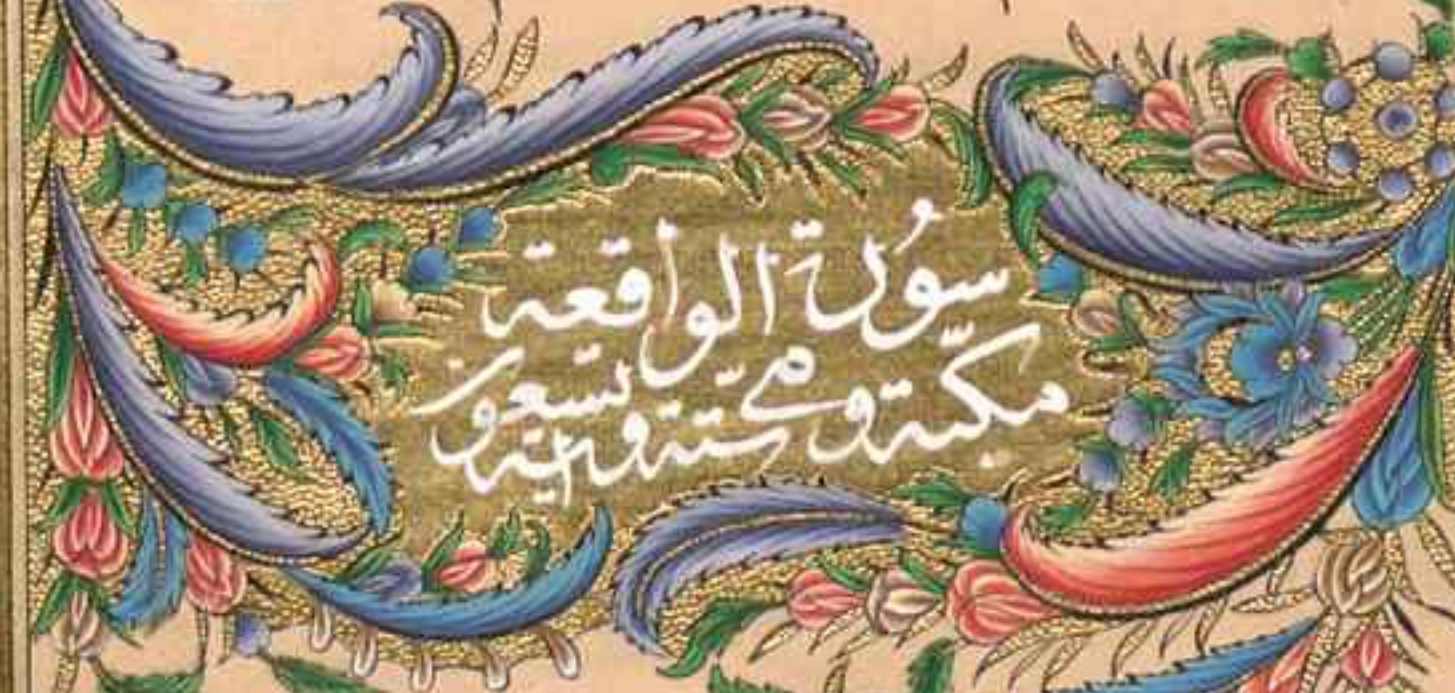 سُورة الواقعة
مكيّة وهي ستّة وتسعون اٰية